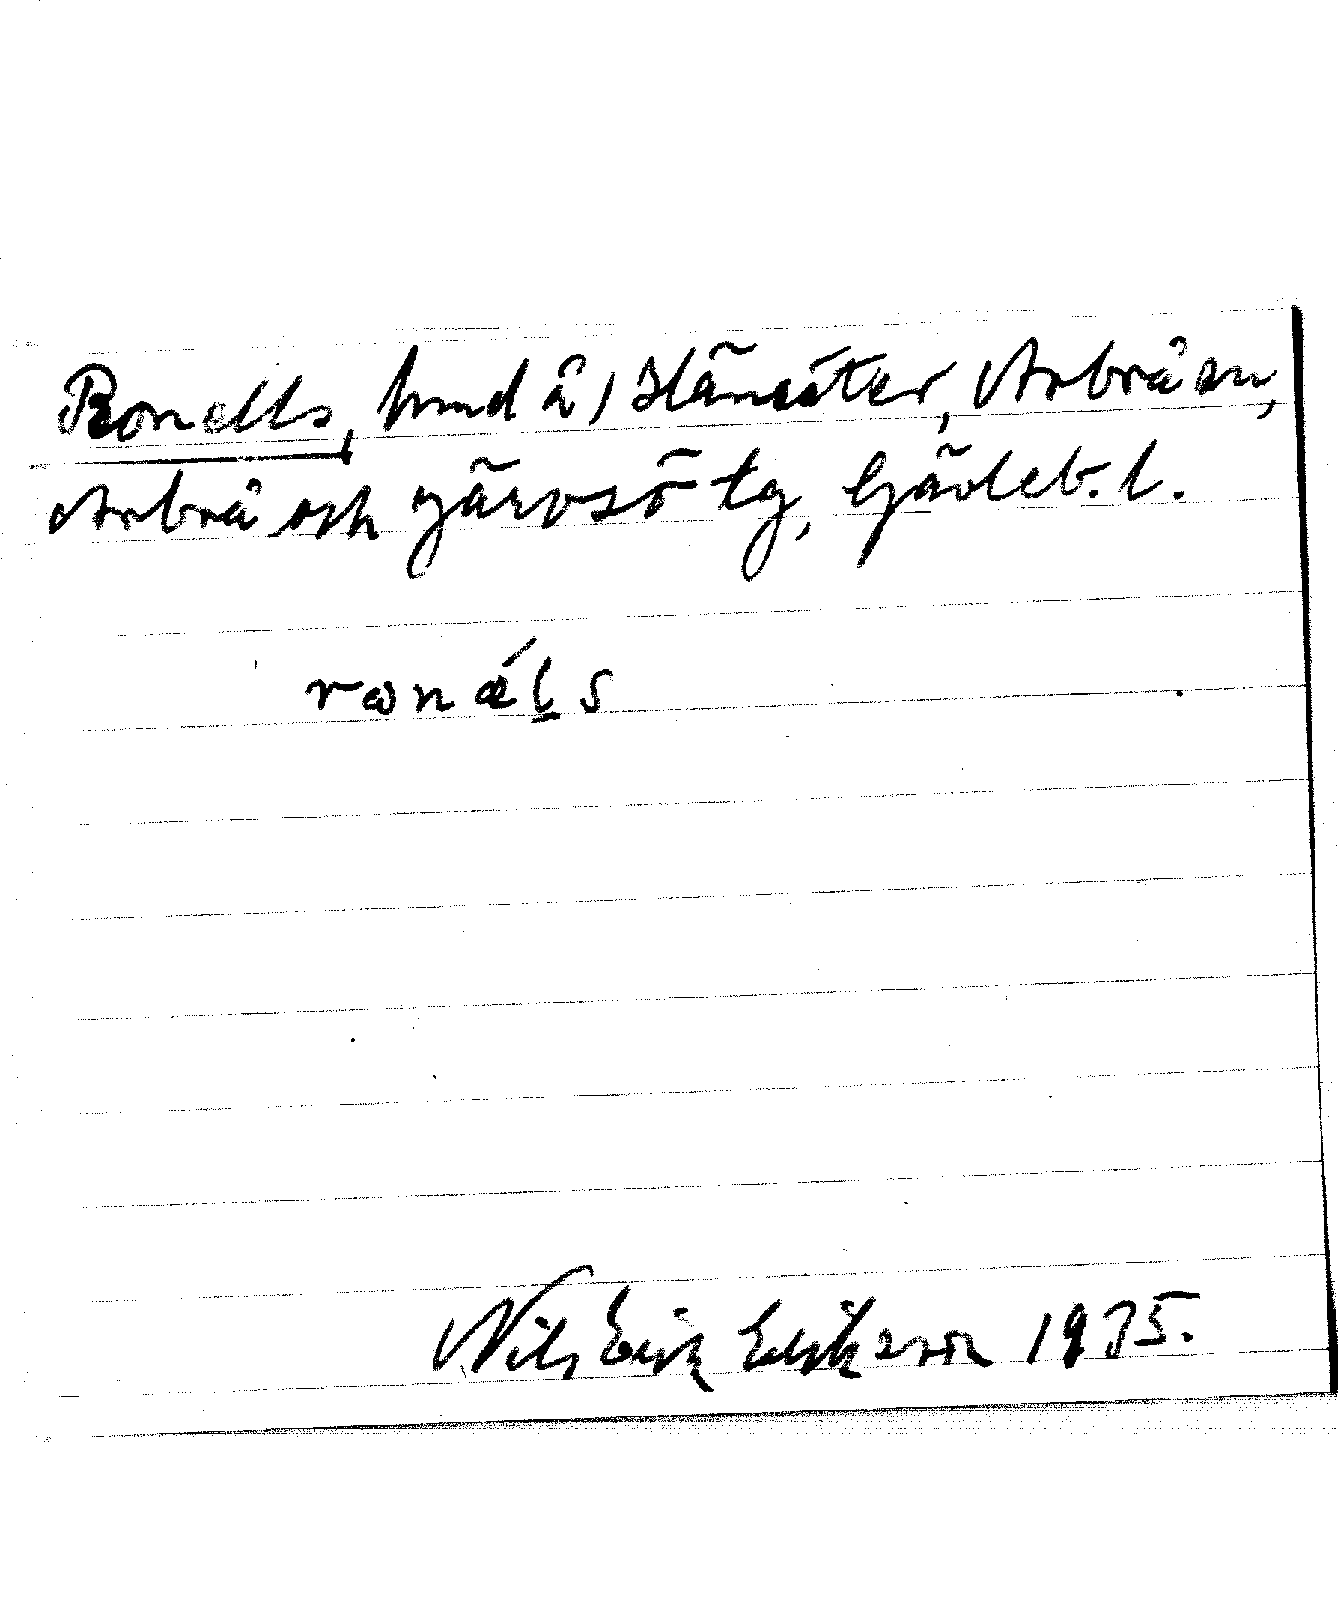 Ronells, hmd å / Hänsäter, Arbrå sn,
Arbrå och Järvsö tg, Gävleb. l.
ronǽl̲s
Nils Erik Eriksson 1975.